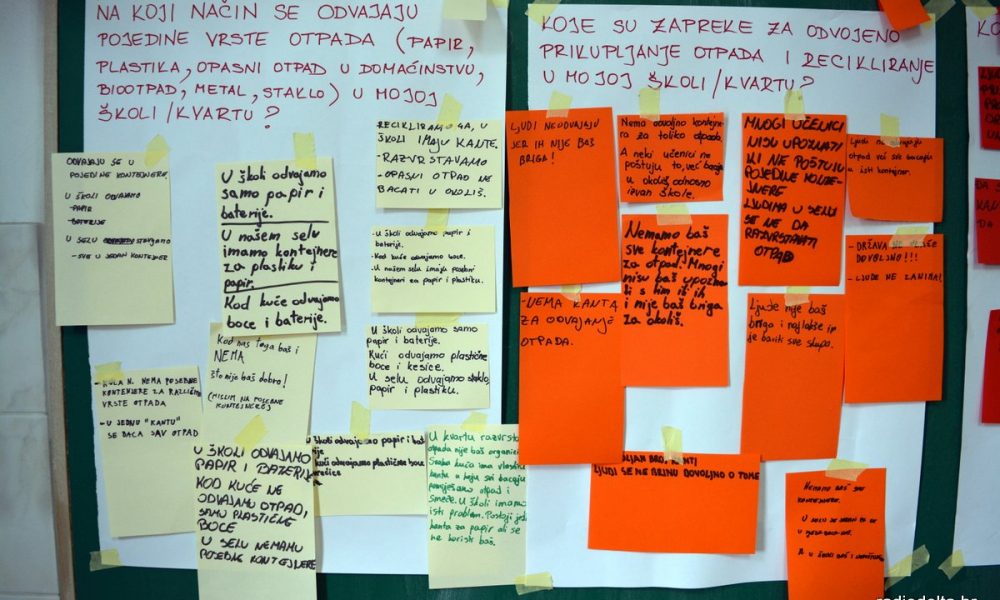 NA KOJI NAČIN SE ODVAJAJU
POJEDINE VRSTE OTPADA (PAPIR,
PLASTIKA, OPASNI OTPAD U DOMAĆINSTVU,
BIOOTPAD, METAL, STAKLO) U MOJOJ
ŠKOLI/KVARTU?
ODVAJAJU SE U
POJEDINE KONTEJNERE.
U ŠKOLI ODVAJAMO
-PAPIR
-BATERIJE
U SELU
-SVE U JEDAN KONTEJNER
U školi odvajamo
samo papir i
baterije.
U našem selu
imamo kontejnere
za plastiku i
papir.
Kod kuće odvajamo
boce i baterije.
RECIKLIRAMO GA, U
ŠKOLI IMAJU KANTE.
-RAZVRSTAVAMO
-OPASNI OTPAD NE
BACATI U OKOLIŠ.
-U školi odvajamo papir i
baterije.
-Kod kuće odvajamo boce.
U našem selu imaju posebni
kontejneri za papir i plastiku.
U školi odvajamo samo
papir i baterije.
Kući odvajamo plastične
boce i kesice.
U selu odvajamo staklo,
papir i plastiku.
Kod nas toga baš i
NEMA
što nije baš dobro!
(MISLIM NA POSEBNE
KONTEJNERE)
N. NEMA POSEBNE
KONTEJNERE ZA RAZLIČITE
VRSTE OTPADA
-U JEDNU "KANTU"
SE BACA SAV OTPAD
U ŠKOLI ODVAJAMO
PAPIR I BATERIJE
KOD KUĆE NE
ODVAJAMO OTPAD,
SAMO PLASTIČNE
BOCE
U SELU NEMAMO
POSEBNE KONTEJNERE
U školi odvajamo papir i
kući odvajamo plastične boce
U kvartu razvrst
otpada nije baš organizi
Svaka kuća ima vlastitu
kantu u koju svi bacaju
pomješano otpad i
smeće. U školi imamo
isti problem. Postoji
kanta za papir ali se
ne koristi baš.
KOJE SU ZAPREKE ZA ODVOJENO
PRIKUPLJANJE OTPADA I RECIKLIRANJE
U MOJOJ ŠKOLI/KVARTU?
LJUDI NEODVAJAJU
JER IH NIJE BAŠ
BRIGA!
Nema dovoljno kontejne-
ra za toliko otpada.
A neki učenici ne
poštuju to, već bacaju
u okoliš odnosno
izvan škole.
MNOGI UČENICI
NISU UPOZNATI
ILI NE POŠTUJU
POJEDINE KONTE-
JNERE
LJUDIMA U SELU
SE NE DA
RAZVRSTAVATI
OTPAD
Ljudi ne
otpad već sve bacaju
u isti kontejner.
Nemamo baš
sve kontejnere
za otpad. Mnogi
nisu baš upozna-
ti s tim ili ih
nije baš briga
za okoliš.
-DRŽAVA NE
DOVOLJNO!!!
-LJUDE NE ZANIMA!
-NEMA KANTA
ZA ODVAJANJE
OTPADA.
Ljude nije baš
briga i najlakše im
je baciti sve skupa.
BROJ KANTI
LJUDI SE NE BRINU DOVOLJNO O TOME
Nemamo baš sve
kontejnere.